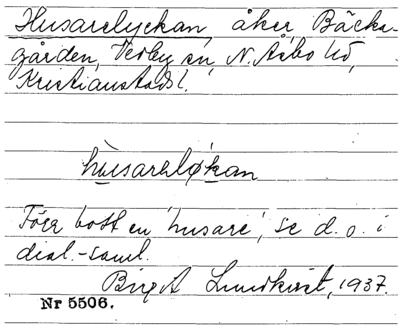 Husarelyckan, åker, Bäcks-
gården, Verby sn, N. Åsbo hd,
Kristianstads l.
húsarəløkan
Förr bott en 'husare', se d. o. i
dial.-saml.
Birgit Lundkvist, 1937.
Nr 5506.